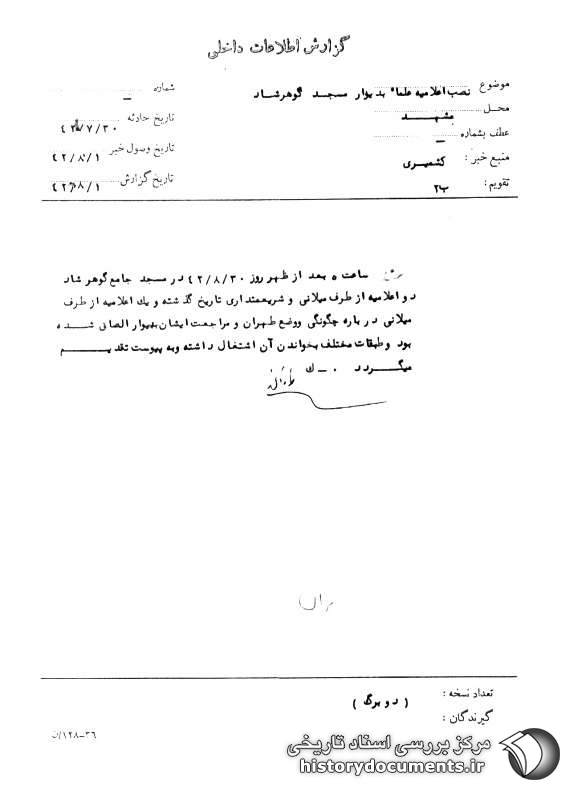 گزارش اطلاعات داخلی
موضوع نصب اعلامیه علماء بدیوار مسجد گوهرشاد
شماره _
محل مشهد
تاریخ حادثه ۴۲/۷/۳۰
عطف بشماره _
تاریخ وصول خبر ۴۲/۸/۱
منبع خبر : کشمیری
تاریخ گزارش ۴۲/۸/۱
تقویم : ب۲
ساعت ۵ بعد از ظهر روز ۴۲/۸/۳۰ در مسجد جامع گوهر شاد
دو اعلامیه از طرف میلانی و شریعتمداری تاریخ گذشته و یك اعلامیه از طرف
میلانی درباره چگونگی ووضع طهران و مراجعت ایشان بدیوار الصاق شده
بود وطبقات مختلف بخواندن آن اشتغال داشته وبه پیوست تقدیم
میگردد ۰ ـ ك
تعداد نسخه : ( دو برگ )
گیرندگان :
۱۲۸-۳۶/ن
مرکز بررسی اسناد تاریخی
historydocuments.ir